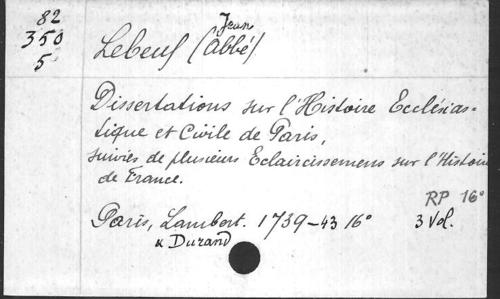 82
350
5
Jean
Lebeuf (Abbé)
Dissertations sur l'Histoire Ecclésias-
tique et Civile de Paris,
suivies de plusieurs Eclaircissemens sur l'Histoire
de France.
RP 16°
Paris, Lambert. 1739-43 16° 3 Vol.
& Durand